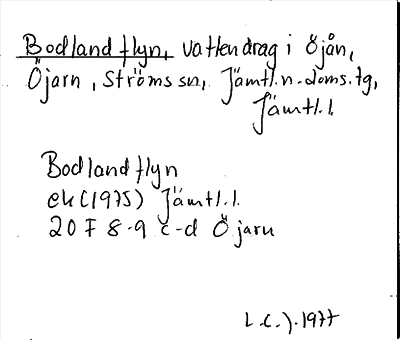 Bodlandflyn, vattendrag i Öjån,
Öjarn, Ströms sn, Jämtl.n. doms.tg,
Jämtl.l.
Bodlandflyn
ek (1975) Jämtl.l.
20 F 8-9 c-d Öjarn
L.C.J. 1977